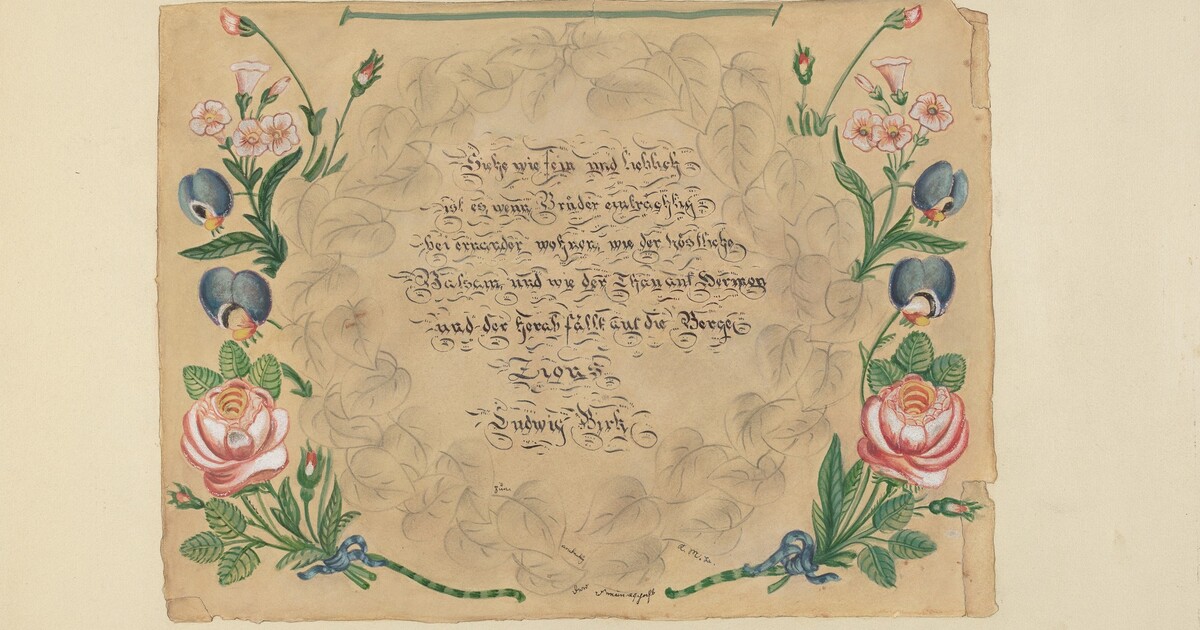 Siehe wie fein und lieblich
ist es, wenn Brüder einträchtig
bei einander wohnen, wie der köstliche
Balsam, und wie der Thau auf Hermon
und der herab fällt auf die Berge
Zions
Ludwig Birk
zum